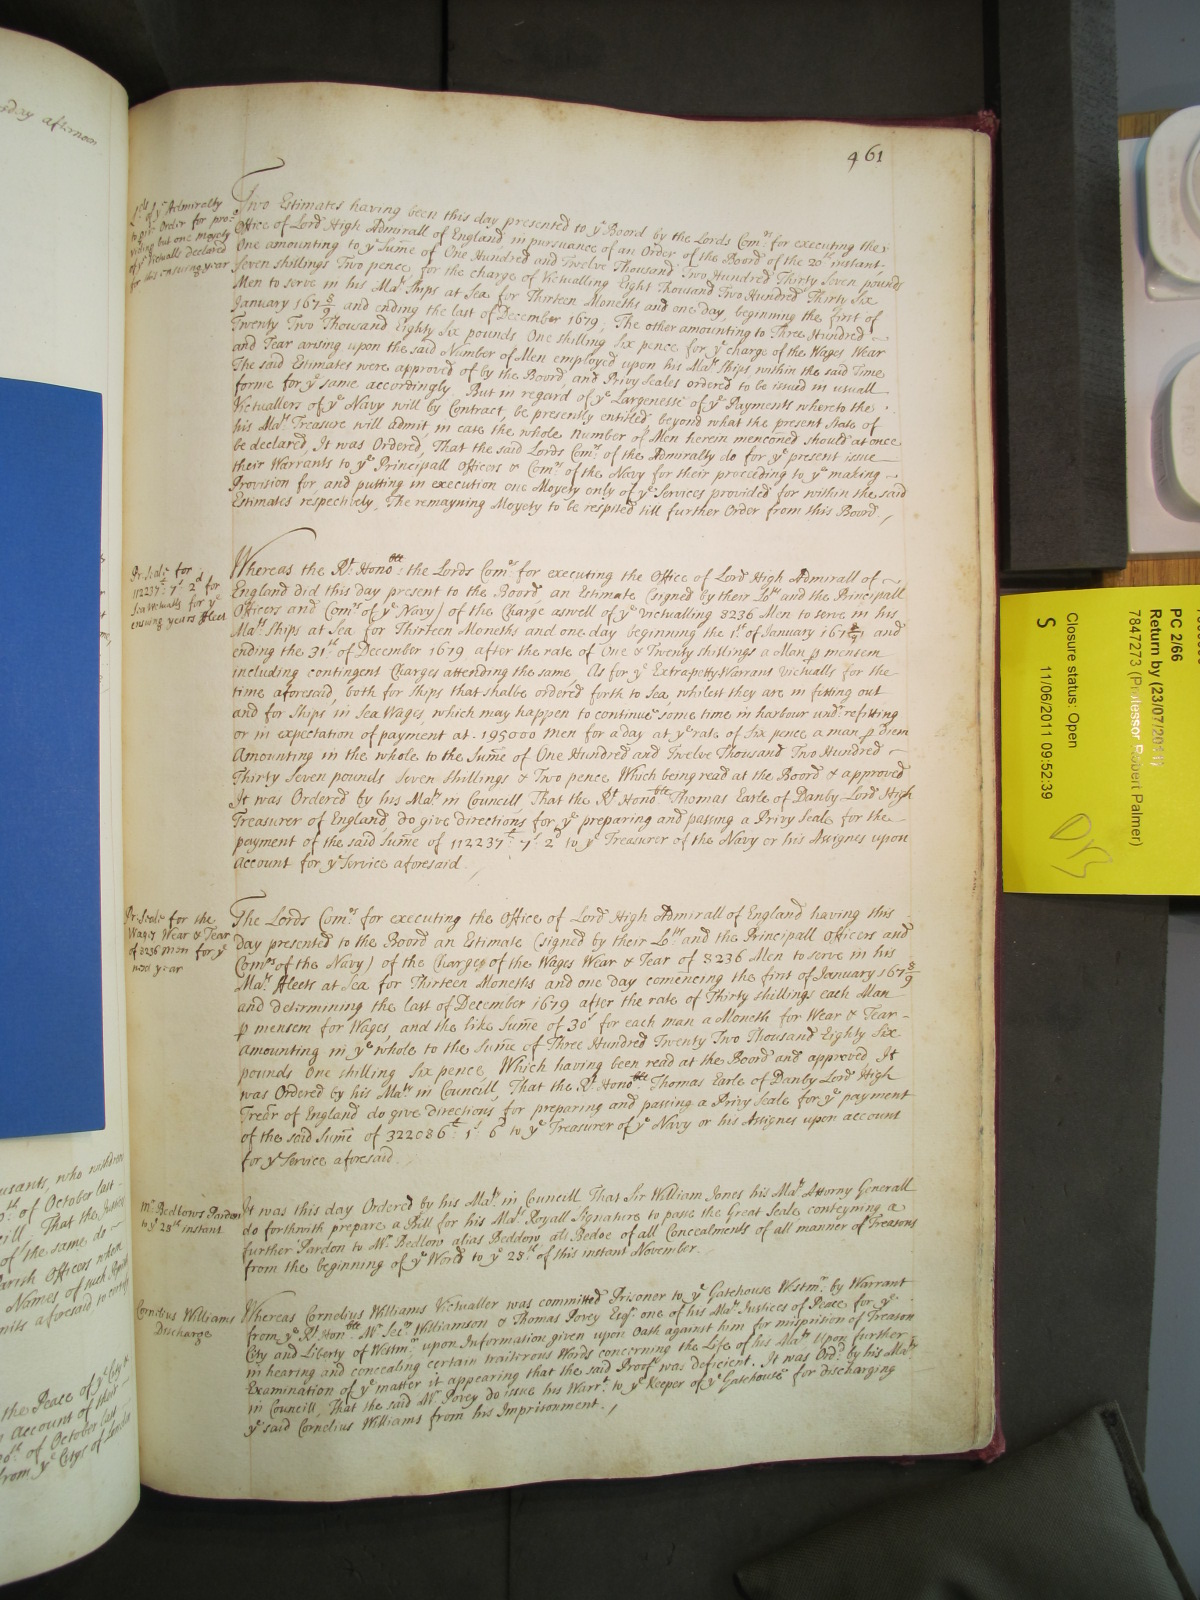 461
Lds of ye Admiralty
to give Order for pro-
viding but one moyety
of ye Victualls declared
for this ensuing year
Two Estimates having been this day presented to ye Board by the Lords Comrs for executing the
Office of Lord High Admirall of England in pursuance of an Order of the Board of the 20th instant
One amounting to ye Sume of One Hundred and Twelve Thousand Two Hundred Thirty Seven pounds
Seven shillings Two pence, for the charge of Victualling Eight Thousand Two Hundred Thirty Six
Men to serve in his Mats Ships at Sea for Thirteen Moneths and one day, beginning the first of
January 167 8/9 and ending the last of December 1679, The other amounting to Three Hundred
Twenty Two Thousand Eighty Six pounds One shilling Six pence for ye charge of the Wages Wear
and Tear arising upon the said Number of Men employed upon his Mats Ships within the said Time
The said Estimates were approved of by the Board, and Privy Seales ordered to be issued in usuall
forme for ye same accordingly, But in regard of ye Largenesse of ye Payments whereto the
Victuallers of ye Navy will by Contract, be presently entitled beyond what the present state of
his Mats Treasure will admit, in case the whole Number of Men herein menconed should at once
be declared, It was Ordered, That the said Lords Comrs of the Admiralty do for ye present issue
their Warrants to ye Principall Officers & Comrs of the Navy for their proceeding to ye making
Provision for and putting in execution one Moyety only of ye Services provided for within the said
Estimates respectively, The remayning Moyety to be respited till further Order from this Board,
Pr. Seale for
112237£ 7s 2d for
Sea Victualls for ye
ensuing years Fleet
Whereas the Rt Honoble the Lords Comrs for executing the Office of Lord High Admirall of
England did this day present to the Board, an Estimate (signed by their Lops and the Principall
Officers and Comrs of ye Navy) of the Charge aswell of ye victualling 8236 Men to serve in his
Mats Ships at Sea for Thirteen Moneths and one day beginning the 1st of January 167 8/9 and
ending the 31st of December 1679 after the rate of One & Twenty shillings a Man p mensem
including contingent Charges attending the same, As for ye Extrapetty Warrant Victualls for the
time aforesaid, both for Ships that shalbe ordered forth to Sea, whilest they are in fitting out
and for Ships in Sea Wages, which may happen to continue some time in harbour undr refitting
or in expectation of payment at 195000 Men for a day at ye rate of Six pence a man p diem
Amounting in the whole to the Sume of One Hundred and Twelve Thousand Two Hundred
Thirty Seven pounds Seven Shillings & Two pence, Which being read at the Board & approved
It was Ordered by his Maty in Councill, That the Rt Honoble Thomas Earle of Danby Lord High
Treasurer of England, do give directions for ye preparing and passing a Privy Seale for the
payment of the said Sume of 112237£ 7s 2d to ye Treasurer of the Navy or his Assignes upon
account for ye Service aforesaid.
Pr. Seale for the
Wages Wear & Tear
of 8236 Men for ye
next year
The Lords Comrs for executing the Office of Lord High Admirall of England having this
day presented to the Board an Estimate (signed by their Lops and the Principall Officers and
Comrs of the Navy) of the Charges of the Wages Wear & Tear of 8236 Men to serve in his
Mats Fleets at Sea for Thirteen Moneths and one day comencing the first of January 167 8/9
and determining the last of December 1679 after the rate of Thirty shillings each Man
p mensem for Wages, and the like Sume of 30s for each man a Moneth for Wear & Tear
amounting in ye whole to the Sume of Three Hundred Twenty Two Thousand Eighty Six
pounds One shilling Six pence, Which having been read at the Board and approved, It
was Ordered by his Maty in Councill, That the Rt Honoble Thomas Earle of Danby Lord High
Trear of England do give directions for preparing and passing a Privy Seale for ye payment
of the said Sume of 322086£ 1s 6d to ye Treasurer of ye Navy or his Assignes upon account
for ye Service aforesaid.
Mr Bedlows Pardon
to ye 28th instant
It was this day Ordered by his Maty in Councill That Sir William Jones his Mats Attorny Generall
do forthwith prepare a Bill for his Mats Royall Signature to passe the Great Seale conteyning a
further Pardon to Mr Bedlow alias Beddow als Bedoe of all Concealments of all manner of Treasons
from the beginning of ye World to ye 28th of this instant November.
Cornelius Williams
Discharge
Whereas Cornelius Williams Victualler was committed Prisoner to ye Gatehouse Westmr by Warrant
from ye Rt Honble Mr Secr Williamson & Thomas Povey Esqr one of his Mats Justices of Peace for ye
City and Liberty of Westmr upon Information given upon Oath against him for misprision of Treason
in hearing and concealing certain traiterous Words concerning the Life of his Maty Upon further
Examination of ye matter it appearing that the said Proofs was deficient, It was Ord. by his Maty
in Councill, That the said Mr Povey do issue his Warrt to ye Keeper of ye Gatehouse for discharging
ye said Cornelius Williams from his Imprisonment.
PC 2/66
Return by (23/07/2011)
7847273 (Professor Robert Palmer)
Closure status: Open
S 11/06/2011 09:52:39
DB